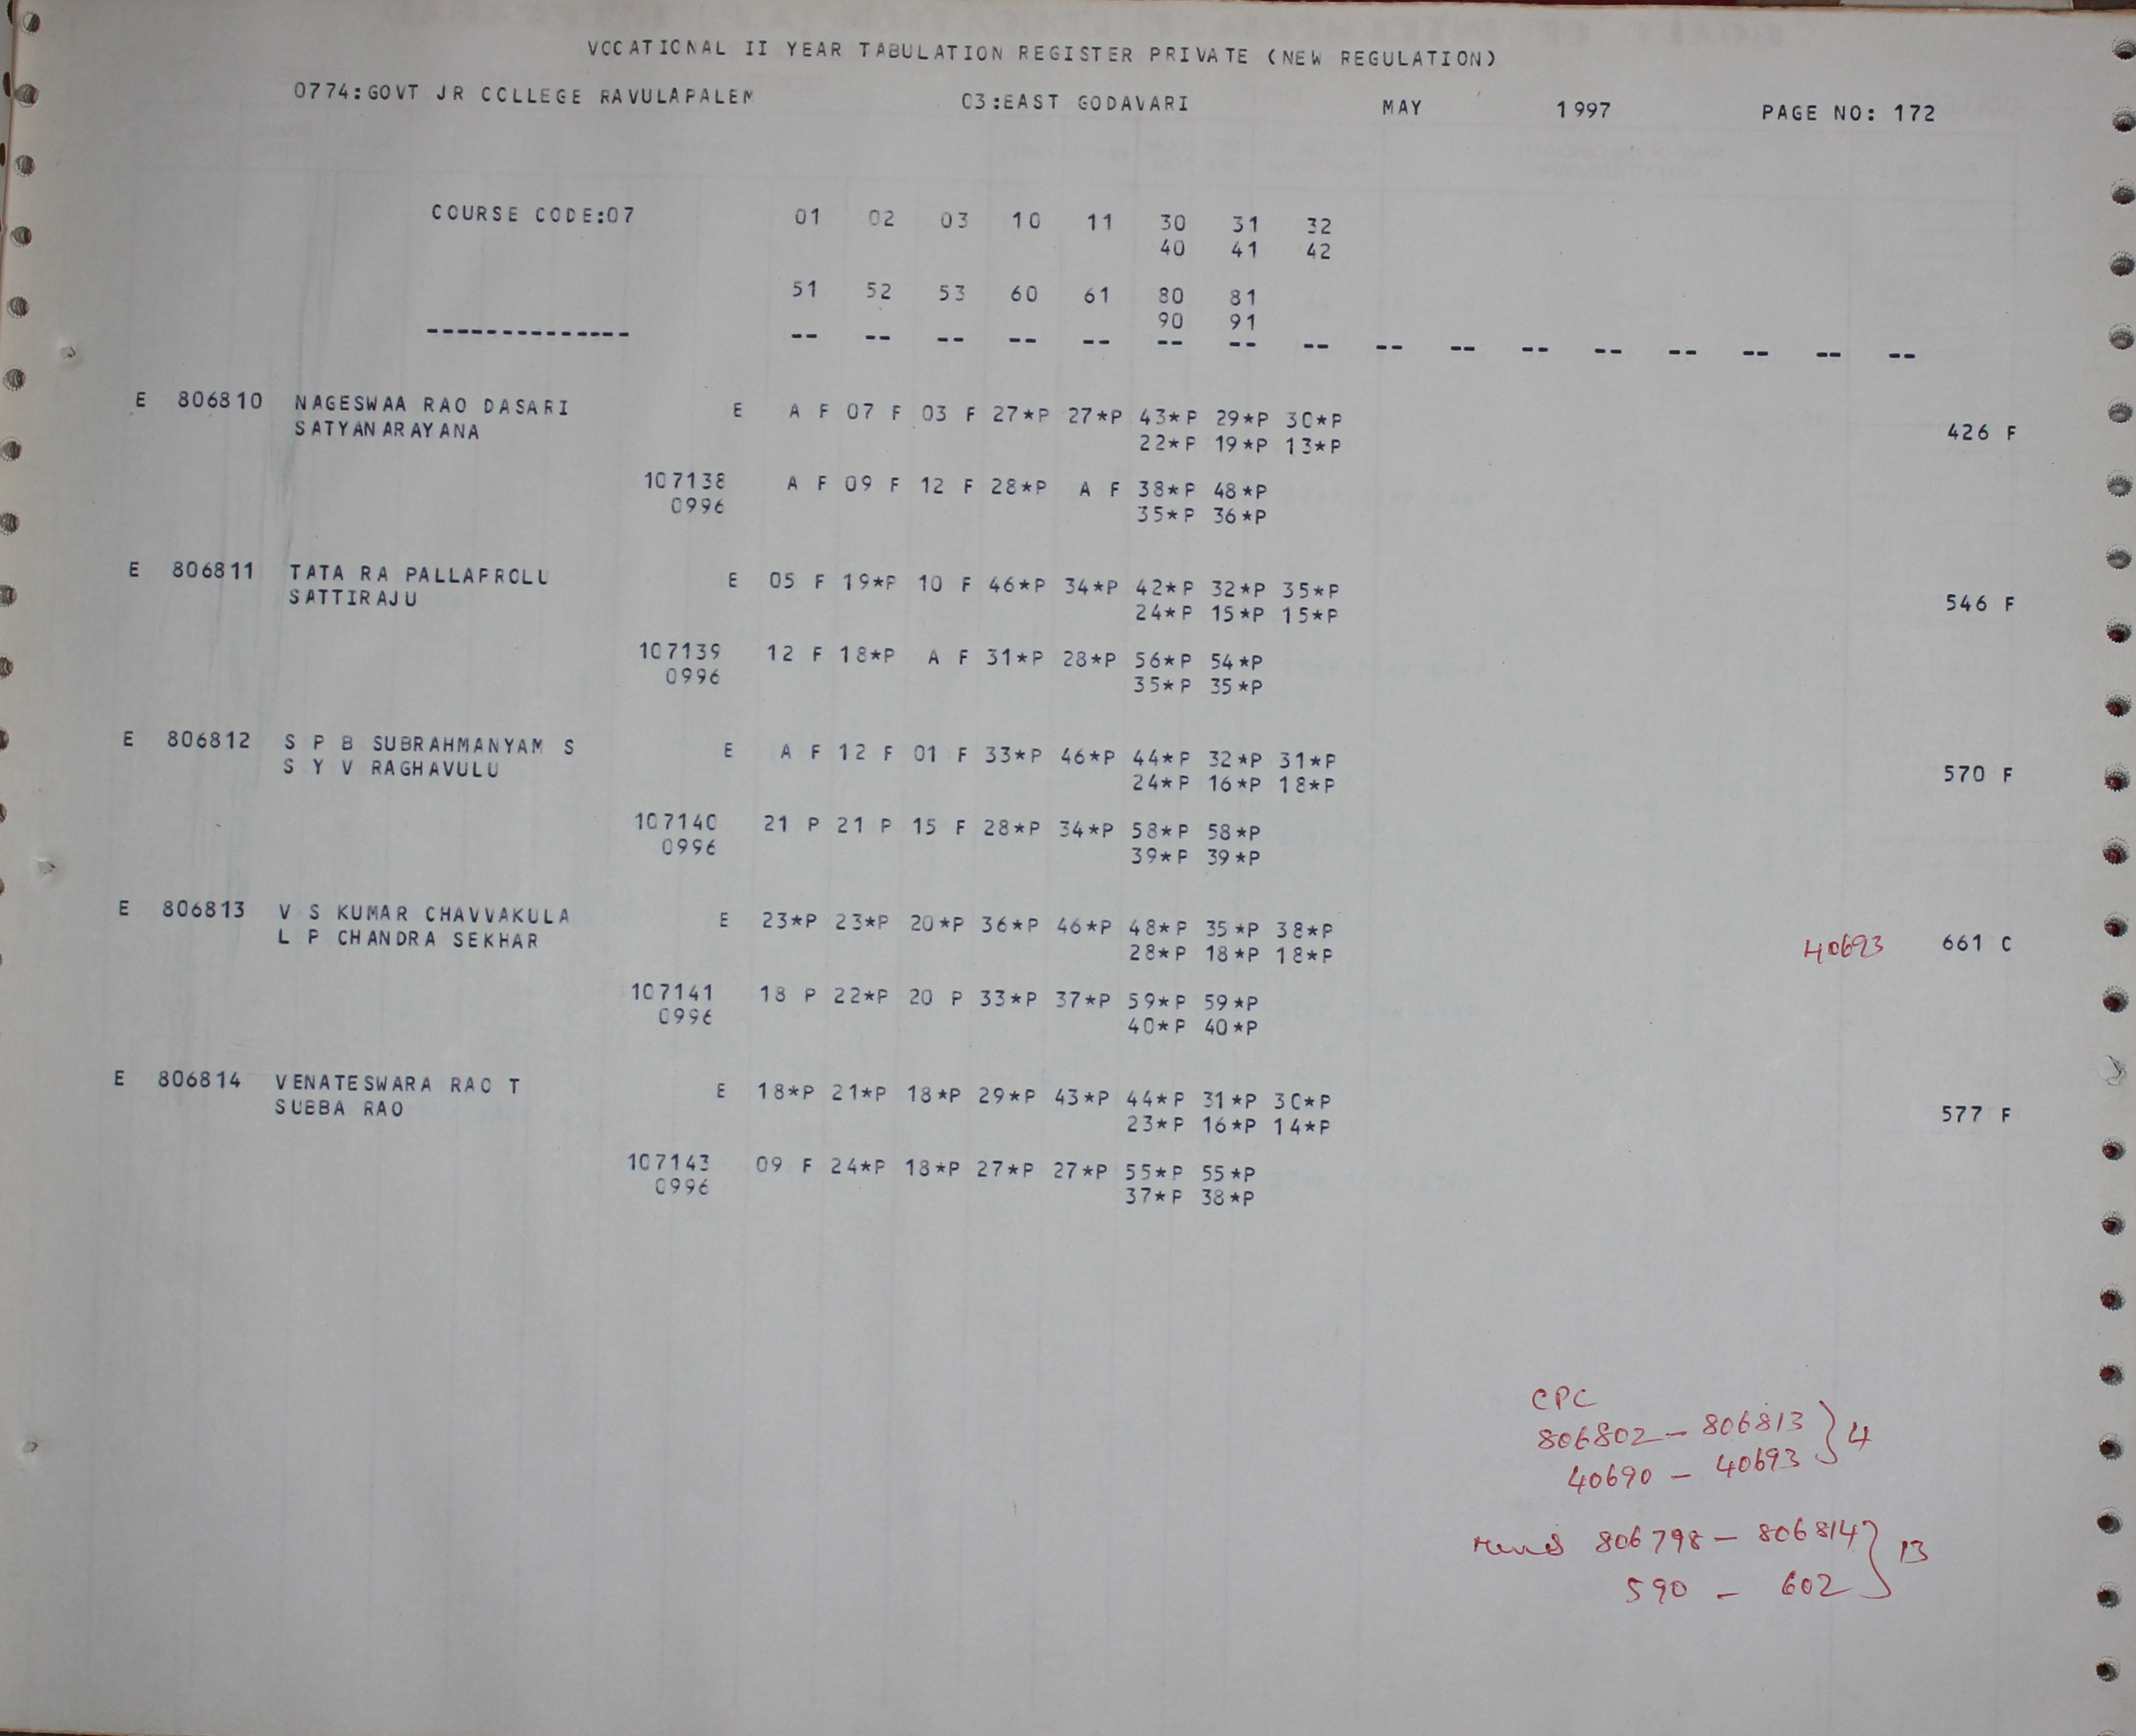 VOCATIONAL II YEAR TABULATION REGISTER PRIVATE (NEW REGULATION)
0774:GOVT JR COLLEGE RAVULAPALEM 03:EAST GODAVARI MAY 1997 PAGE NO: 172
COURSE CODE:07 01 02 03 10 11 30 31 32
40 41 42
51 52 53 60 61 80 81
90 91
-------------- -- -- -- -- -- -- -- -- -- -- -- -- -- -- -- --
E 806810 NAGESWAA RAO DASARI E A F 07 F 03 F 27*P 27*P 43*P 29*P 30*P
SATYANARAYANA 22*P 19*P 13*P 426 F
107138 A F 09 F 12 F 28*P A F 38*P 48*P
0996 35*P 36*P
E 806811 TATA RA PALLAPROLU E 05 F 19*P 10 F 46*P 34*P 42*P 32*P 35*P
SATTIRAJU 24*P 15*P 15*P 546 F
107139 12 F 18*P A F 31*P 28*P 56*P 54*P
0996 35*P 35*P
E 806812 S P B SUBRAHMANYAM S E A F 12 F 01 F 33*P 46*P 44*P 32*P 31*P
S Y V RAGHAVULU 24*P 16*P 18*P 570 F
107140 21 P 21 P 15 F 28*P 34*P 58*P 58*P
0996 39*P 39*P
E 806813 V S KUMAR CHAVVAKULA E 23*P 23*P 20*P 36*P 46*P 48*P 35*P 38*P
L P CHANDRA SEKHAR 28*P 18*P 18*P 40693 661 C
107141 18 P 22*P 20 P 33*P 37*P 59*P 59*P
0996 40*P 40*P
E 806814 VENATESWARA RAO T E 18*P 21*P 18*P 29*P 43*P 44*P 31*P 30*P
SUBBA RAO 23*P 16*P 14*P 577 F
107143 09 F 24*P 18*P 27*P 27*P 55*P 55*P
0996 37*P 38*P
CPC
806802 - 806813 } 4
40690 - 40693
806798 - 806814 } 13
590 - 602